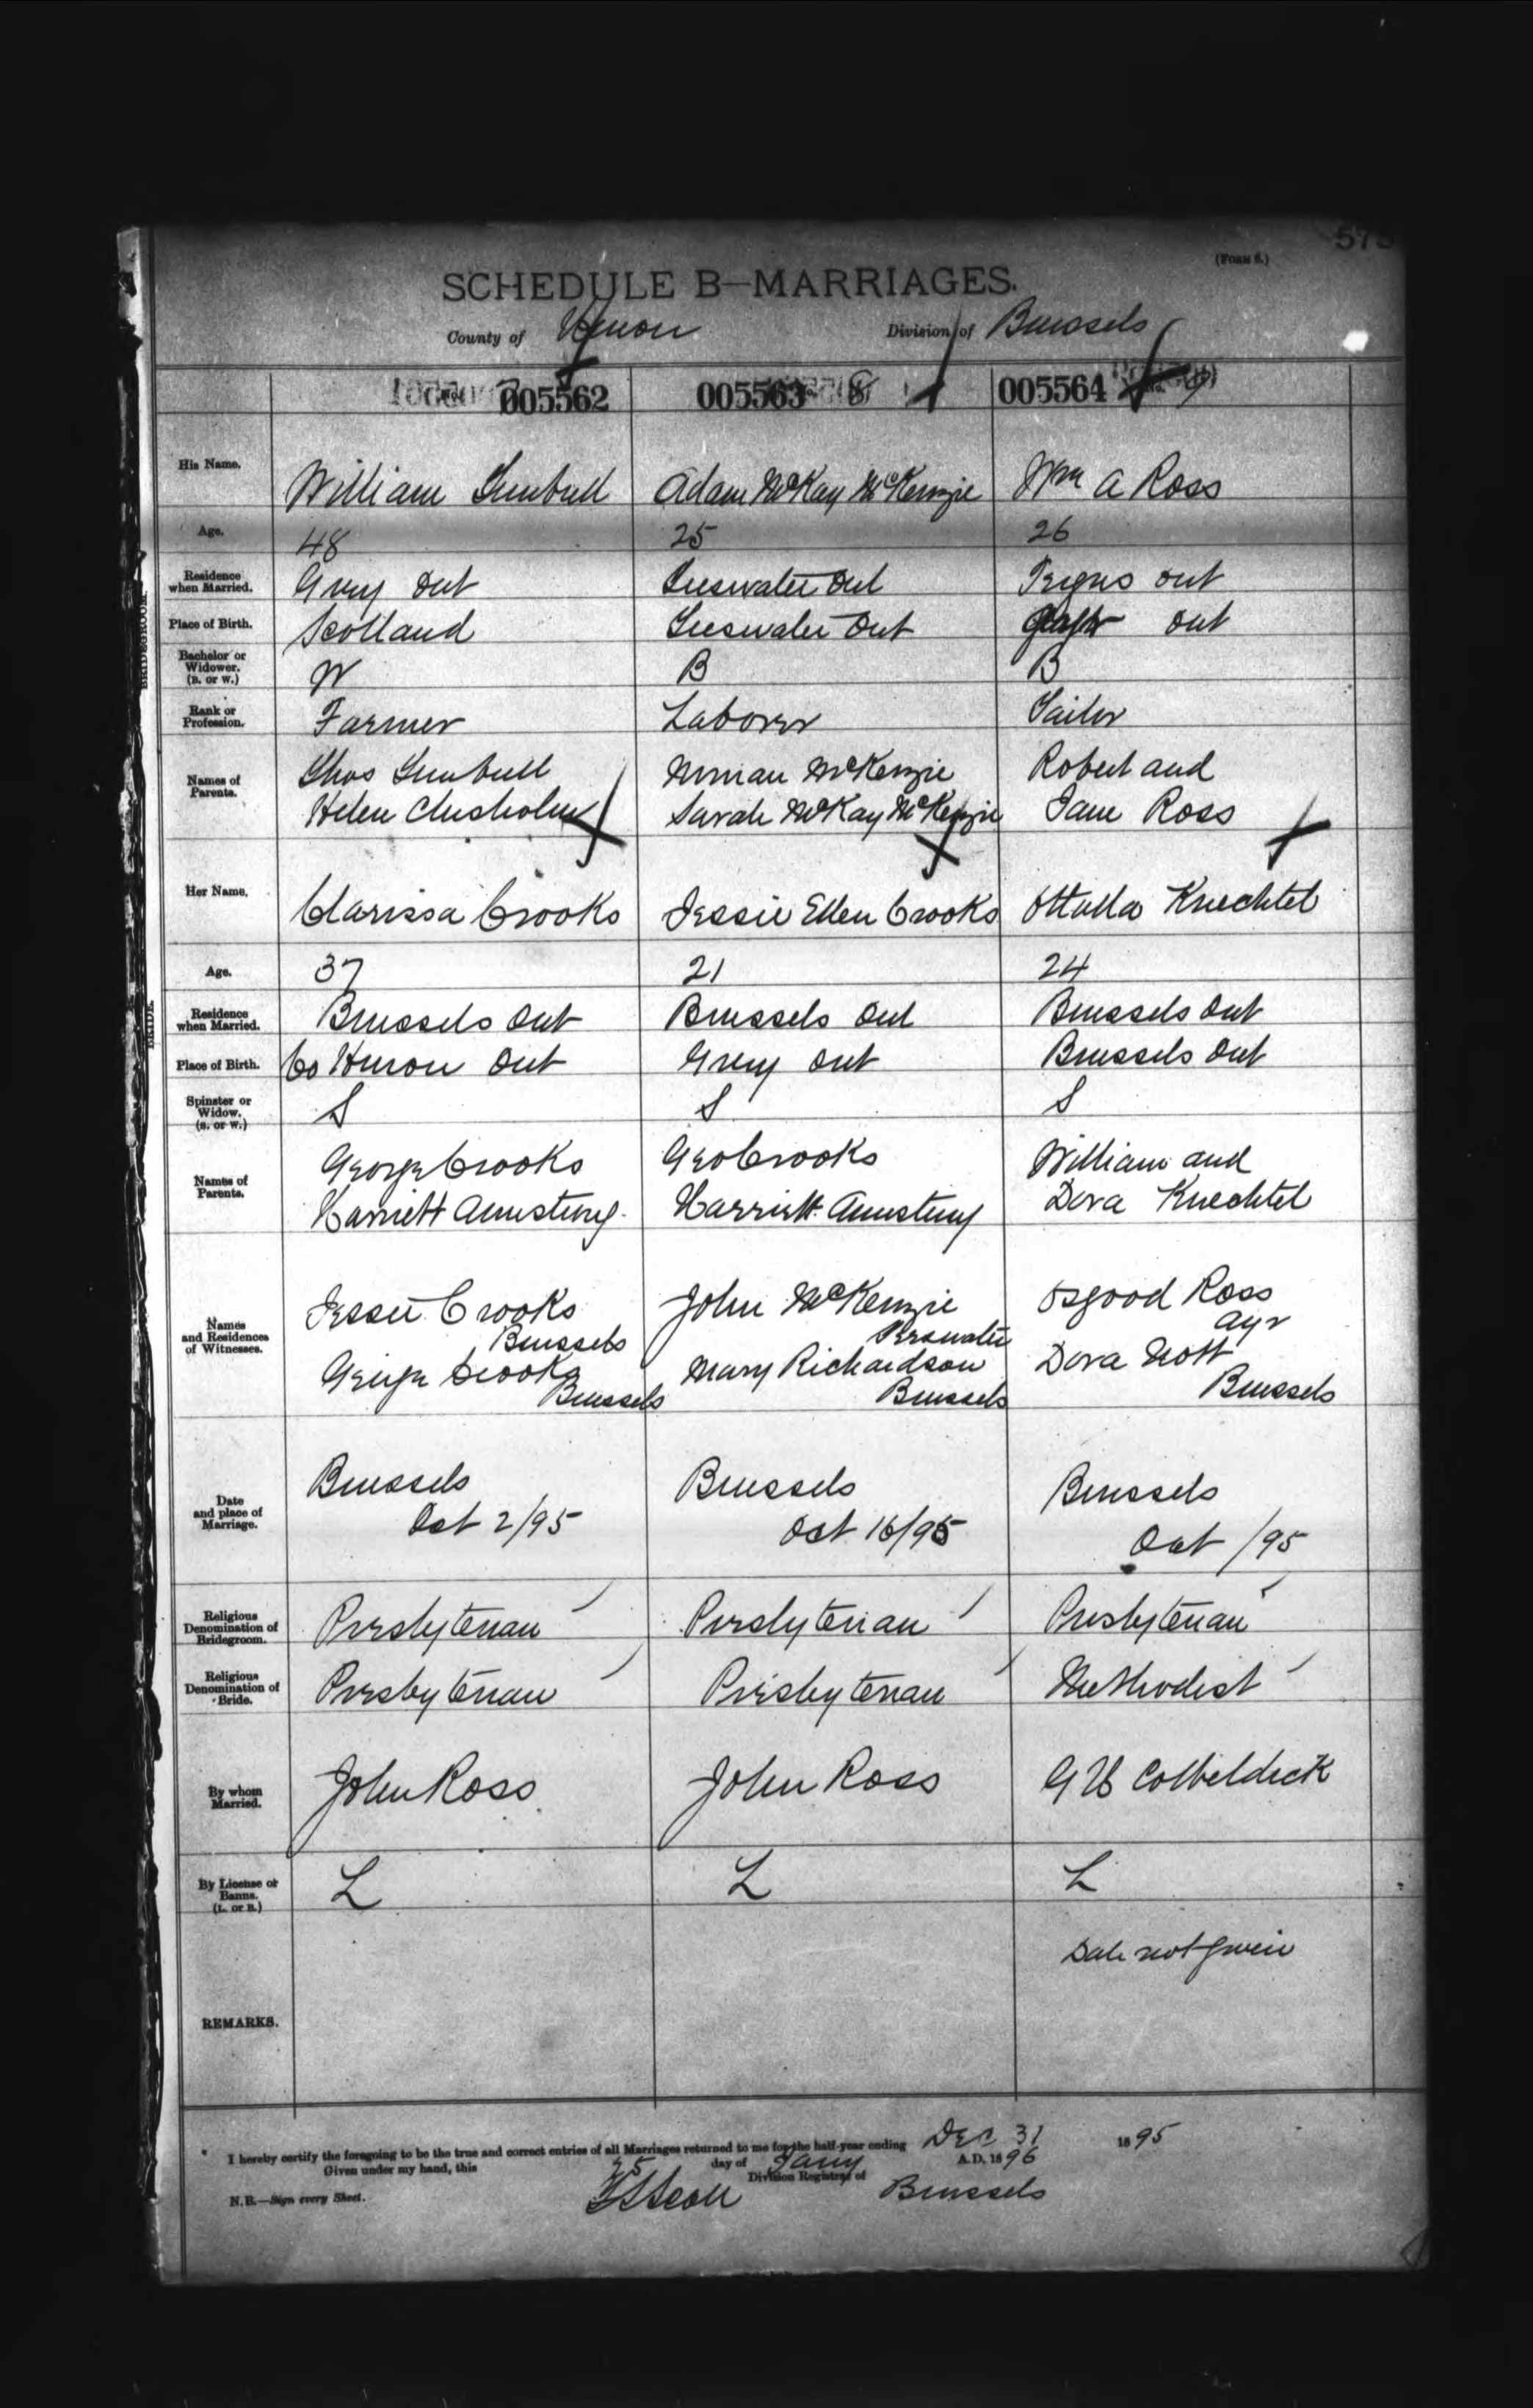 575
(FORM 6.)
SCHEDULE B—MARRIAGES.
County of Huron Division of Brussels
005562 005563 005564
His Name. William Turnbull Adam McKay McKenzie Wm A Ross
Age. 48 25 26
Residence when Married. Grey Ont Teeswater Ont Fergus Ont
Place of Birth. Scotland Teeswater Ont Ont
Bachelor or Widower. (B. or W.) W B B
Rank or Profession. Farmer Laborer Tailor
Names of Parents. Thos Turnbull Norman McKenzie Robert and
Helen Chisholm Sarah McKay McKenzie Jane Ross
BRIDEGROOM.
Her Name. Clarissa Crooks Jessie Ellen Crooks Knechtel
Age. 37 21 24
Residence when Married. Brussels Ont Brussels Ont Brussels Ont
Place of Birth. Co Huron Ont Grey Ont Brussels Ont
Spinster or Widow. (S. or W.) S S S
Names of Parents. George Crooks Geo Crooks William and
Harriett Armstrong Harriett Armstrong Dora Knechtel
BRIDE.
Names and Residences of Witnesses. Jessie Crooks John McKenzie Osgood Ross
Brussels Teeswater Ayr
George Crooks Mary Richardson Dora
Brussels Brussels Brussels
Date and place of Marriage. Brussels Brussels Brussels
Oct 2/95 Oct 16/95 Oct /95
Religious Denomination of Bridegroom. Presbyterian Presbyterian Presbyterian
Religious Denomination of Bride. Presbyterian Presbyterian Methodist
By whom Married. John Ross John Ross
By License or Banns. (L. or B.) L L L
REMARKS. Date not given
I hereby certify the foregoing to be the true and correct entries of all Marriages returned to me for the half-year ending Dec 31 1895
Given under my hand, this 25 day of Jany A.D. 1896
Scott Division Registrar of Brussels
N.B.—Sign every Sheet.